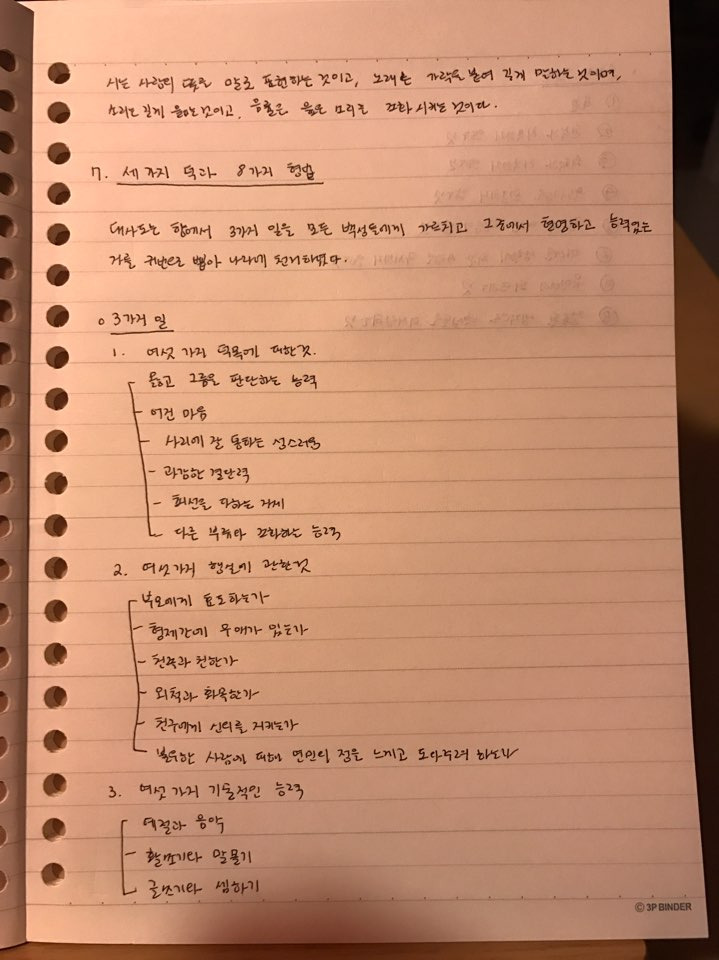 시는 사람의 뜻을 말로 표현하는 것이고, 노래는 가락을 붙여 길게 말하는 것이며,
소리는 길게 읊는 것이고, 음률은 읊은 소리를 조화시키는 것이다.
7. 세 가지 덕과 8가지 형법
대사도는 향에서 3가지 일을 모든 백성들에게 가르치고 그중에서 현명하고 능력있는
자를 귀빈으로 뽑아 나라에 천거하였다.
○ 3가지 일
1. 여섯 가지 덕목에 대한 것.
옳고 그름을 판단하는 능력
- 어진 마음
- 사리에 잘 통하는 성스러움
- 과감한 결단력
- 최선을 다하는 자세
다른 부류와 조화하는 능력
2. 여섯가지 행실에 관한것
부모에게 효도하는가
- 형제간에 우애가 있는가
- 친족과 친한가
- 외척과 화목한가
- 친구에게 신의를 지키는가
불우한 사람에 대해 연민의 정을 느끼고 도와주려 하느냐
3. 여섯 가지 기술적인 능력
예절과 음악
- 활쏘기와 말몰기
글쓰기와 셈하기
© 3P BINDER